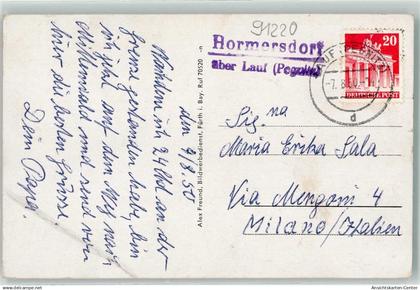 91220
Hormersdorf
über Lauf (Pegnitz)
LAUF (PEGNITZ)
-7.8.50
d
20
DEUTSCHE POST
den 7/8.50
Nachdem ich 24 Std an der
Grenze gestanden habe, bin
ich jetzt auf dem Weg nach
Mittenwald und sende von
hier die besten Grüsse.
Dein Papa.
Alex Freund, Bildwerbedienst, Fürth i. Bay. Ruf 70520
Sig.na
Maria Erika Sala
Via Mengoni 4
Milano/Italien
Ansichtskarten-Center.de